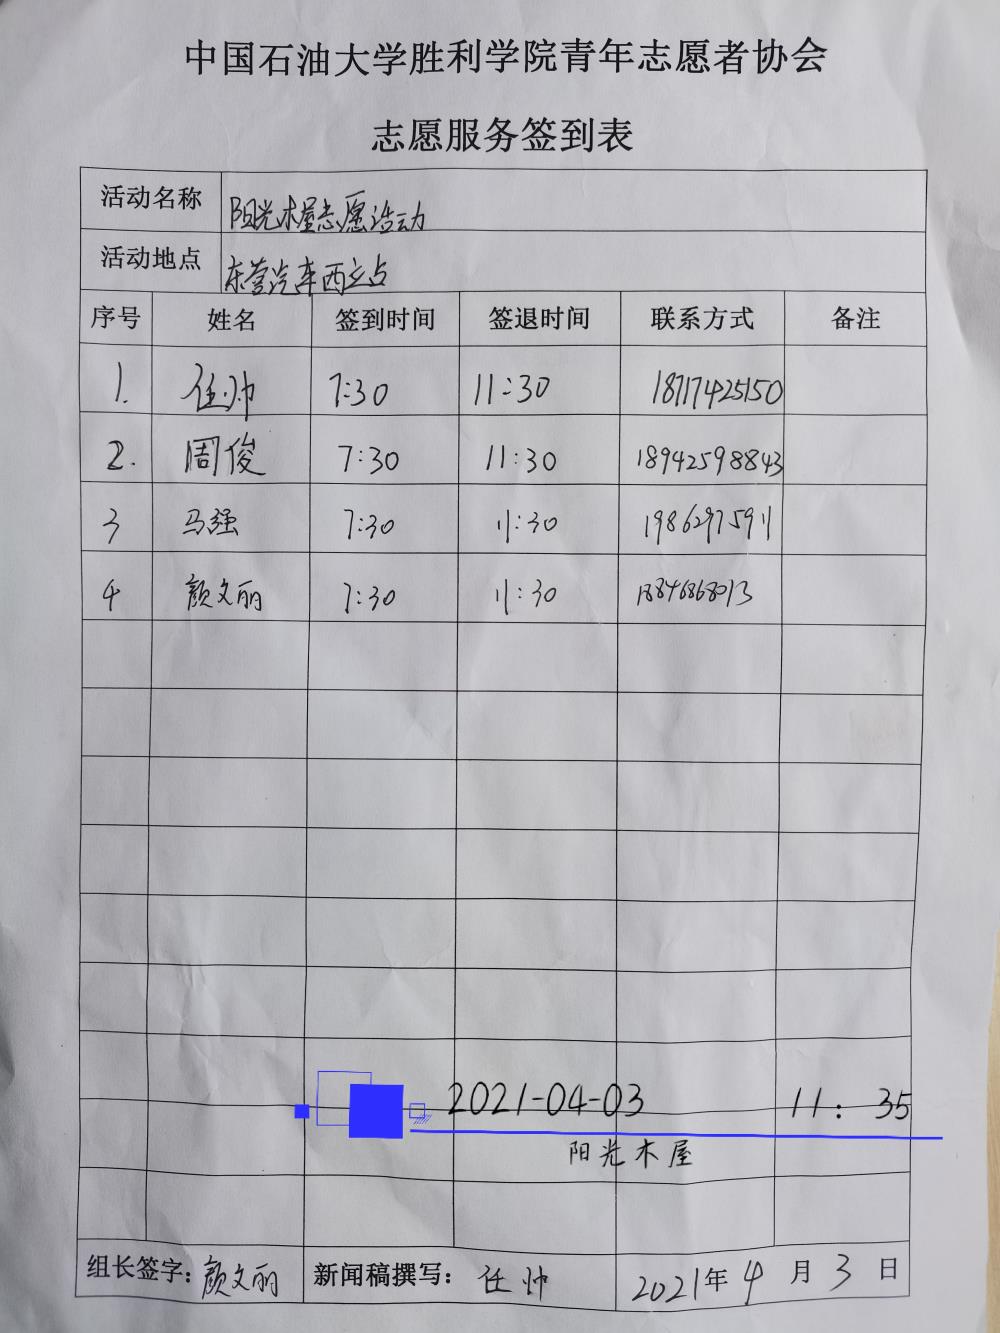 中国石油大学胜利学院青年志愿者协会
志愿服务签到表
活动名称 阳光木屋志愿活动
活动地点 东营汽车西立点
序号 姓名 签到时间 签退时间 联系方式 备注
1. 任帅 7:30 11:30 18717425150
2. 周俊 7:30 11:30 18942598843
3 马强 7:30 11:30
4 颜文丽 7:30 11:30
2021-04-03 11: 35
阳光木屋
组长签字: 颜文丽 新闻稿撰写: 任帅 2021年4月3日